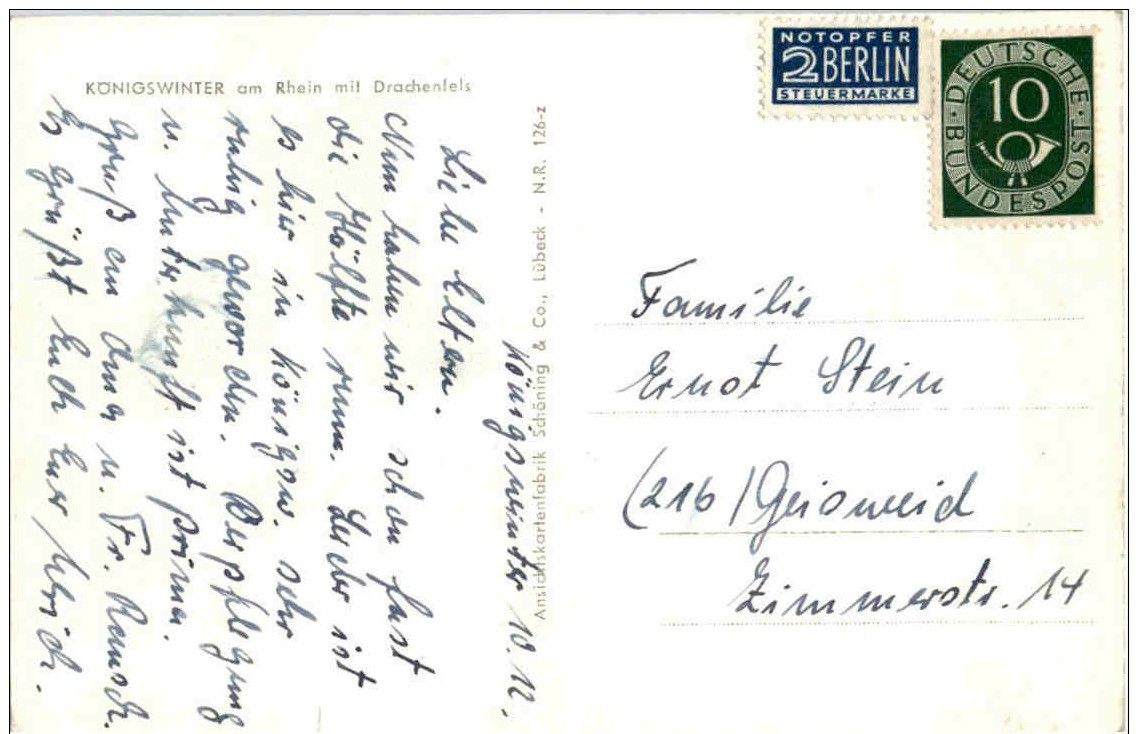 KÖNIGSWINTER am Rhein mit Drachenfels
Königswinter 10.12.
Liebe Eltern.
Nun haben wir schon fast
die Hälfte rum. Leider ist
es hier in Königsw. sehr
ruhig geworden. Verpflegung
u. Unterkunft ist prima.
Gruß an Oma u. Fr.
Es grüßt Euch Euer Ulrich.
Ansichtskartenfabrik Schöning & Co., Lübeck - N.R. 126-z
NOTOPFER
2 BERLIN
STEUERMARKE
DEUTSCHE BUNDESPOST
10
Familie
Ernst Stein
(21b) Geisweid
Zimmerstr. 14